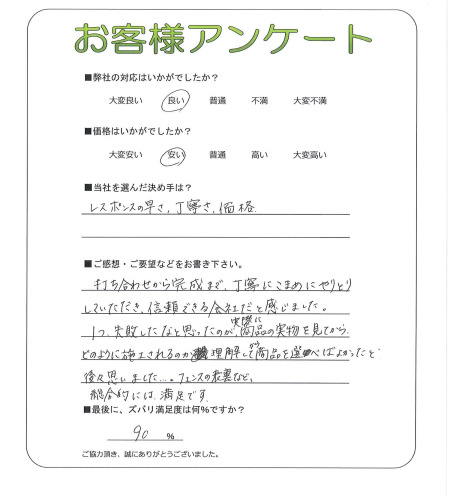 お客様アンケート
■弊社の対応はいかがでしたか？
大変良い 良い 普通 不満 大変不満
■価格はいかがでしたか？
大変安い 安い 普通 高い 大変高い
■当社を選んだ決め手は？
レスポンスの早さ，丁寧さ，価格
■ご感想・ご要望などをお書き下さい。
打ち合わせから完成まで、丁寧にこまめにやりとり
していただき、信頼できる会社だと感じました。
1つ、失敗したなと思ったのが、実際に商品の実物を見てから、
どのように施工されるのか理解してから商品を選べばよかったと
後々思いました…。フェンスの表裏など、
総合的には、満足です。
■最後に、ズバリ満足度は何％ですか？
90 ％
ご協力頂き、誠にありがとうございました。